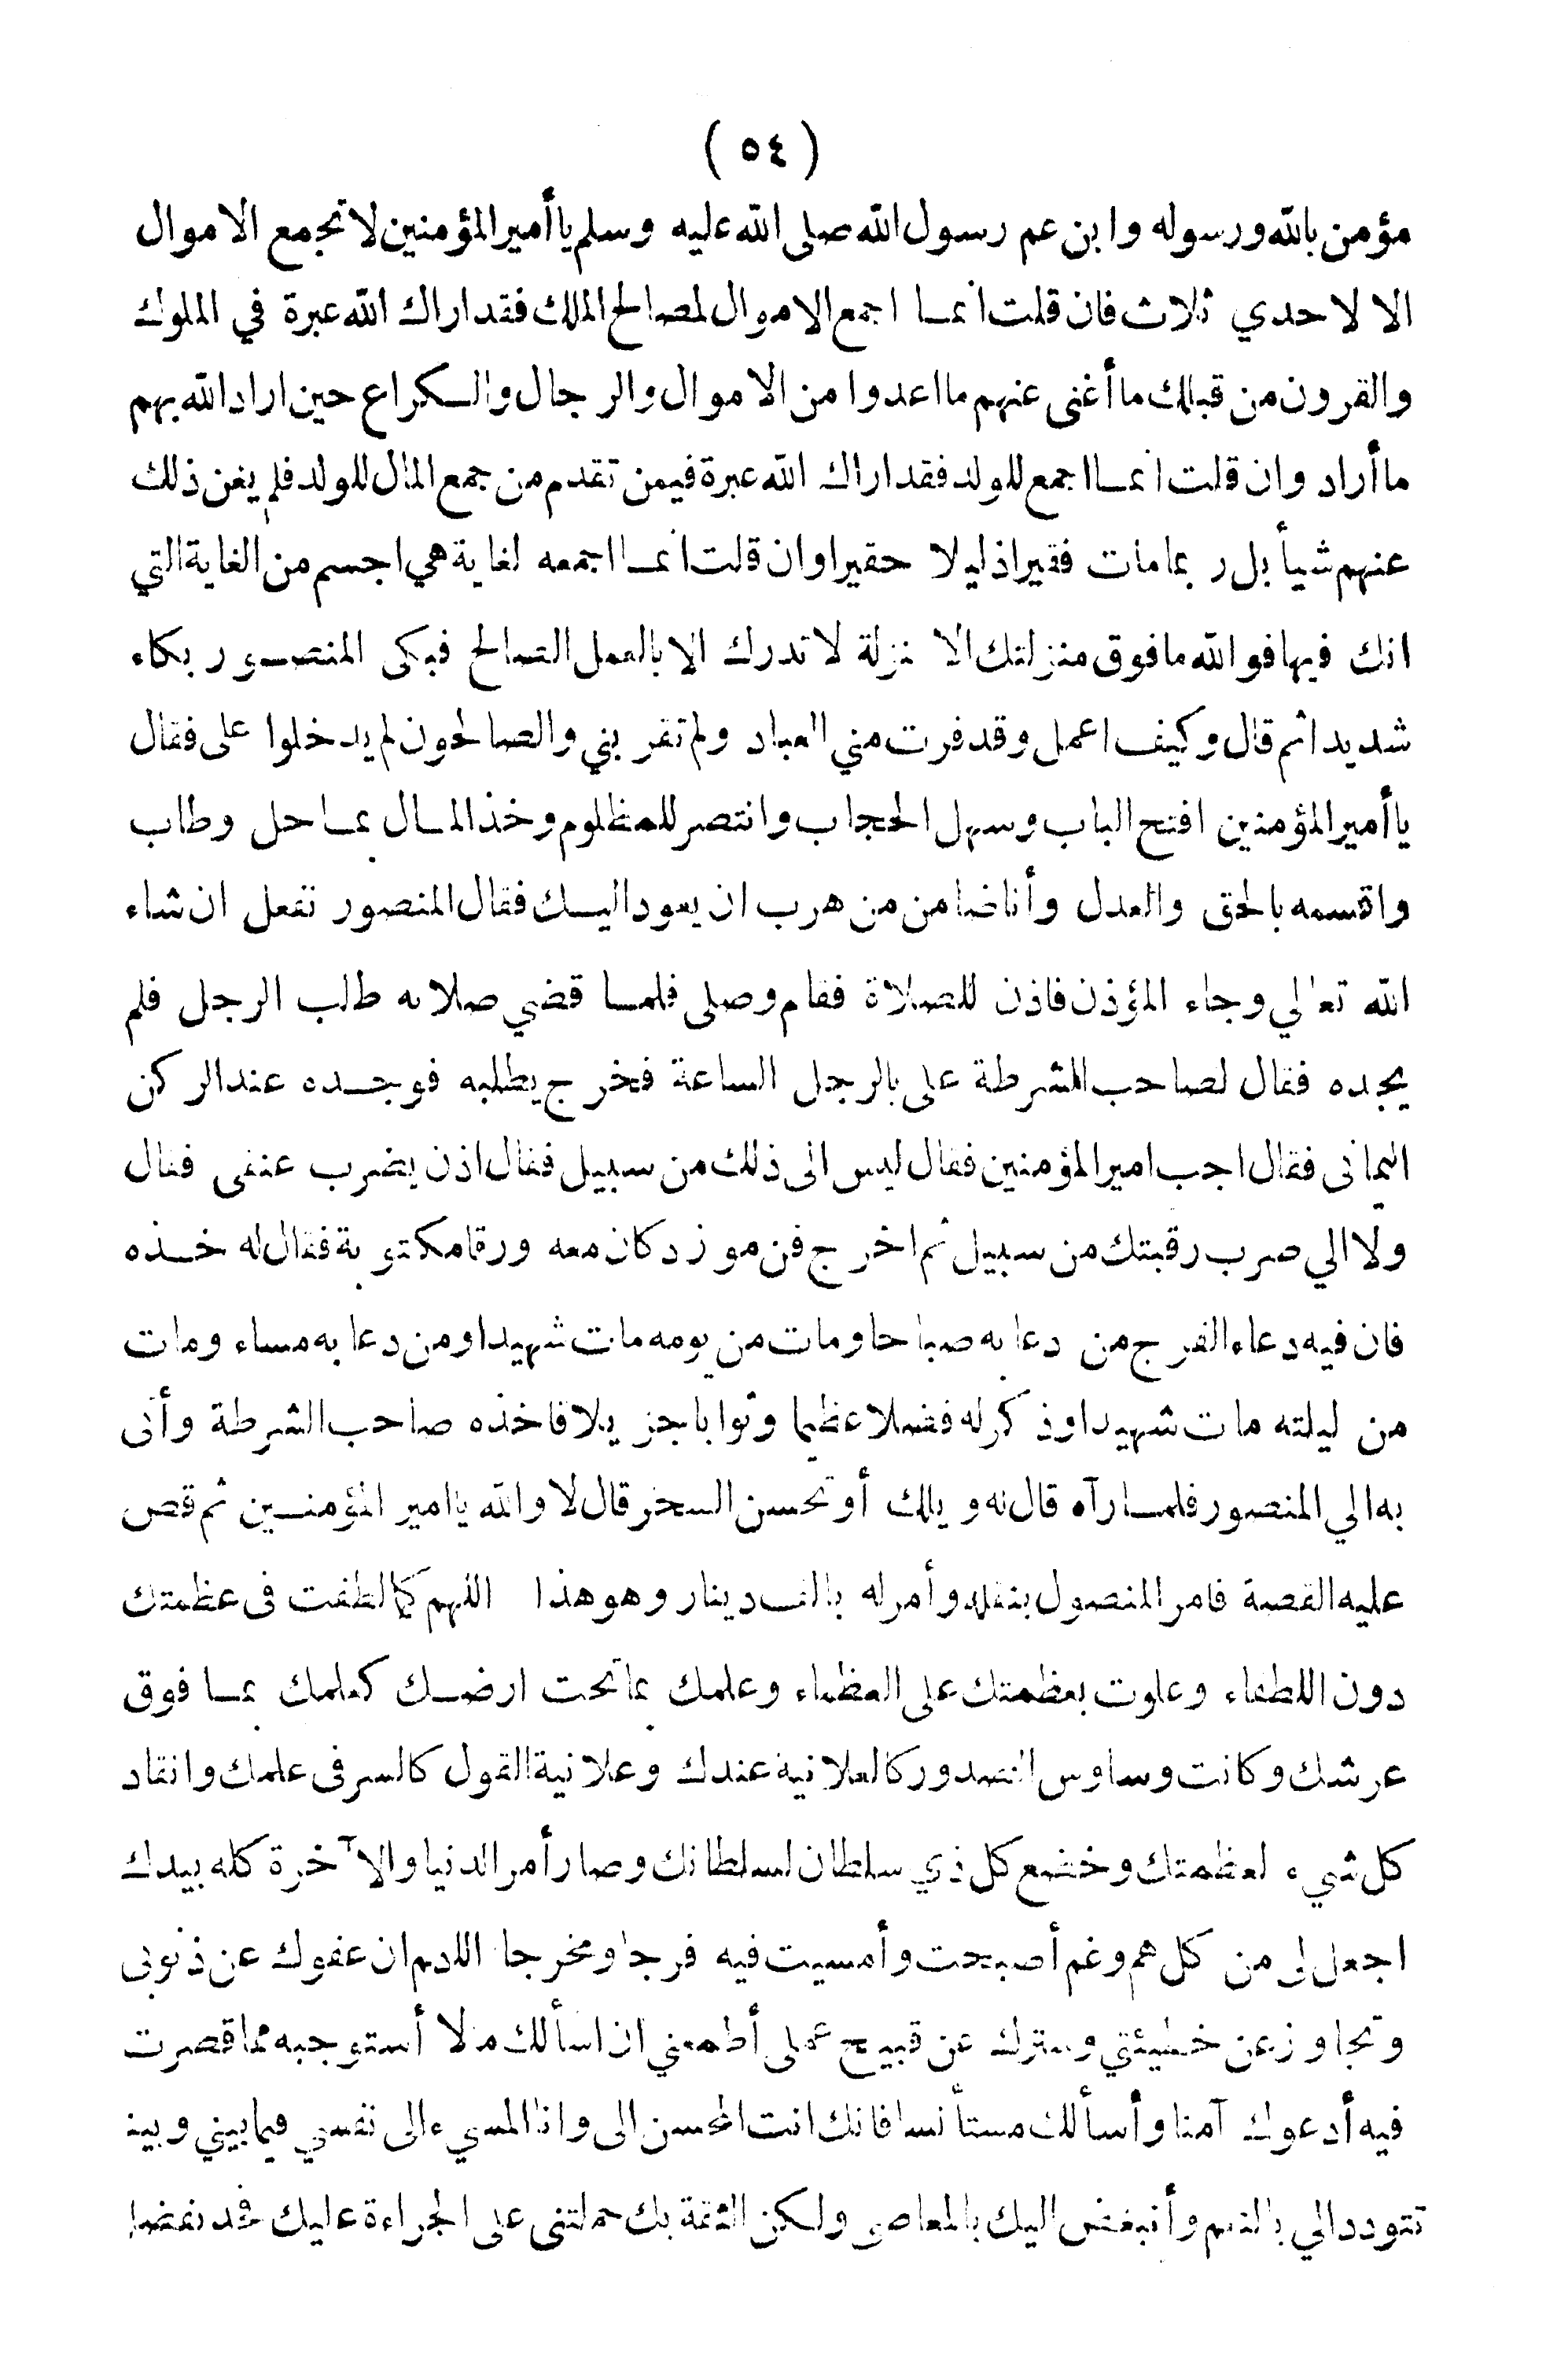 ( ٥٤ )
مؤمن بالله ورسوله وابن عم رسول الله صلى الله عليه وسلم يا أمير المؤمنين لا تجمع الاموال
الا لاحدي ثلاث فان قلت انما اجمع الاموال لمصالح الملك فقد اراك الله عبرة في الملوك
والقرون من قبلك ما أغنى عنهم ما اعدوا من الاموال والرجال والكراع حين اراد الله بهم
ما أراد وان قلت انما اجمع للولد فقد اراك الله عبرة فيمن تقدم من جمع المال للولد فلم يغن ذلك
عنهم شيأ بل ربما مات فقيرا ذليلا حقيرا وان قلت انما اجمعه لغاية هي اجسم من الغاية التي
انك فيها فو الله ما فوق منزلتك الا نزلة لا تدرك الا بالعمل الصالح فبكى المنصور بكاء
شديدا ثم قال وكيف اعمل وقد فرت مني العباد ولم تقربني والصالحون لم يدخلوا على فقال
يا أمير المؤمنين افتح الباب وسهل الحجاب وانتصر للمظلوم وخذ المال بما حل وطاب
واقسمه بالحق والعدل وأنا ضامن من هرب ان يعود اليك فقال المنصور تفعل ان شاء
الله تعالي وجاء المؤذن فاذن للصلاة فقام وصلى فلما قضي صلاته طلب الرجل فلم
يجده فقال لصاحب الشرطة على بالرجل الساعة فخرج يطلبه فوجده عند الركن
اليماني فقال اجب امير المؤمنين فقال ليس الى ذلك من سبيل فقال اذن يضرب عنقى فقال
ولا الي ضرب رقبتك من سبيل ثم اخرج من مزود كان معه ورقا مكتوبة فقال له خذه
فان فيه دعاء الفرج من دعا به صباحا ومات من يومه مات شهيدا ومن دعا به مساء ومات
من ليلته مات شهيدا وذكر له فضلا عظيما وثوابا جزيلا فاخذه صاحب الشرطة وأتى
به الي المنصور فلما رآه قال له ويلك أو تحسن السحر قال لا والله يا امير المؤمنين ثم قص
عليه القصة فامر المنصول بنقله وأمر له بالف دينار وهو هذا اللهم كما لطفت فى عظمتك
دون اللطفاء وعلوت بعظمتك على العظماء وعلمك بما تحت ارضك كعلمك بما فوق
عرشك وكانت وساوس الصدور كالعلانية عندك وعلانية القول كالسر فى علمك وانقاد
كل شيء لعظمتك وخضع كل ذي سلطان لسلطانك وصار أمر الدنيا والآخرة كله بيدك
اجعل لى من كل هم وغم أصبحت وأمسيت فيه فرجا ومخرجا اللهم ان عفوك عن ذنوبى
وتجاوزعن خطيئتي وسترك عن قبيح عملى أطمعني ان اسألك ما لا أستوجبه مما قصرت
فيه أدعوك آمنا وأسألك مستأنسا فانك انت المحسن الى وانا المسيء الى نفسي فيما بيني وبين
تتودد الي بالنعم وأتبغض اليك بالمعاصى ولكن الثقة بك حملتنى على الجراءة عليك فعد بفضل